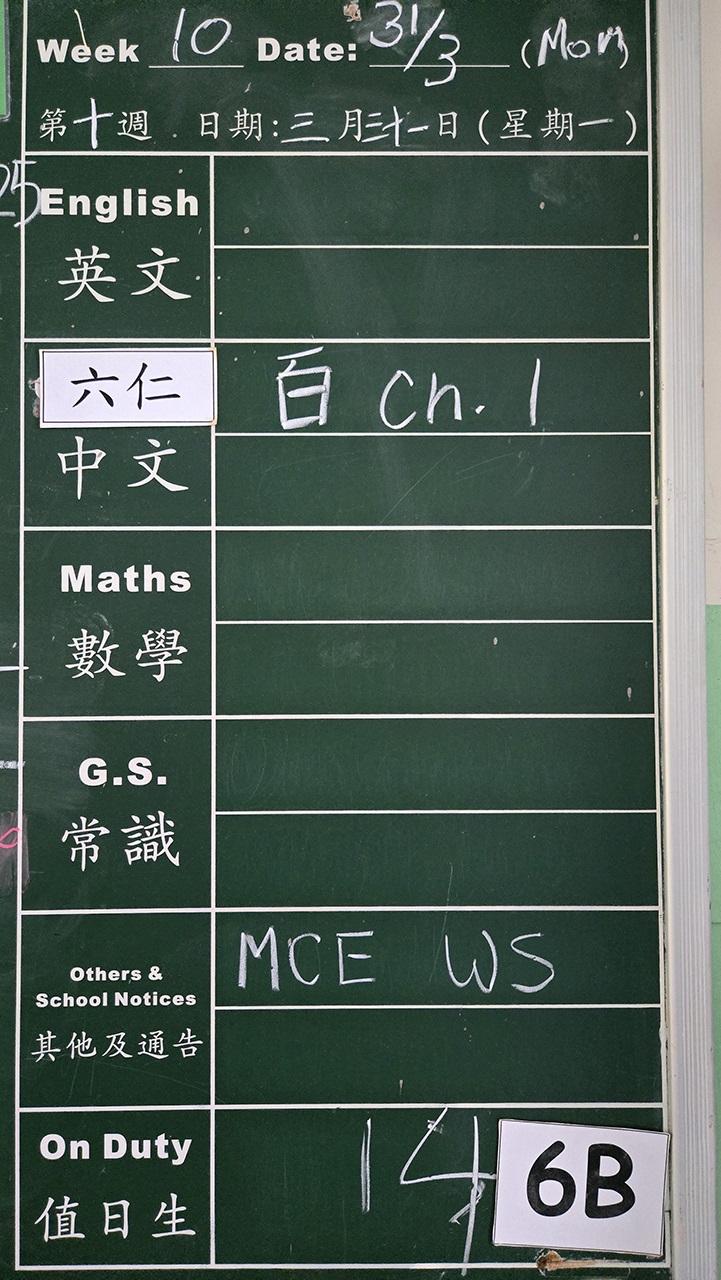 Week 10 Date: 31/3 (Mon)
第十週 日期:三月三十一日(星期一)
25
English
英文
六仁
百 Ch. 1
中文
Maths
數學
G.S.
常識
Others &
School Notices
其他及通告
MCE WS
On Duty
值日生
14
6B